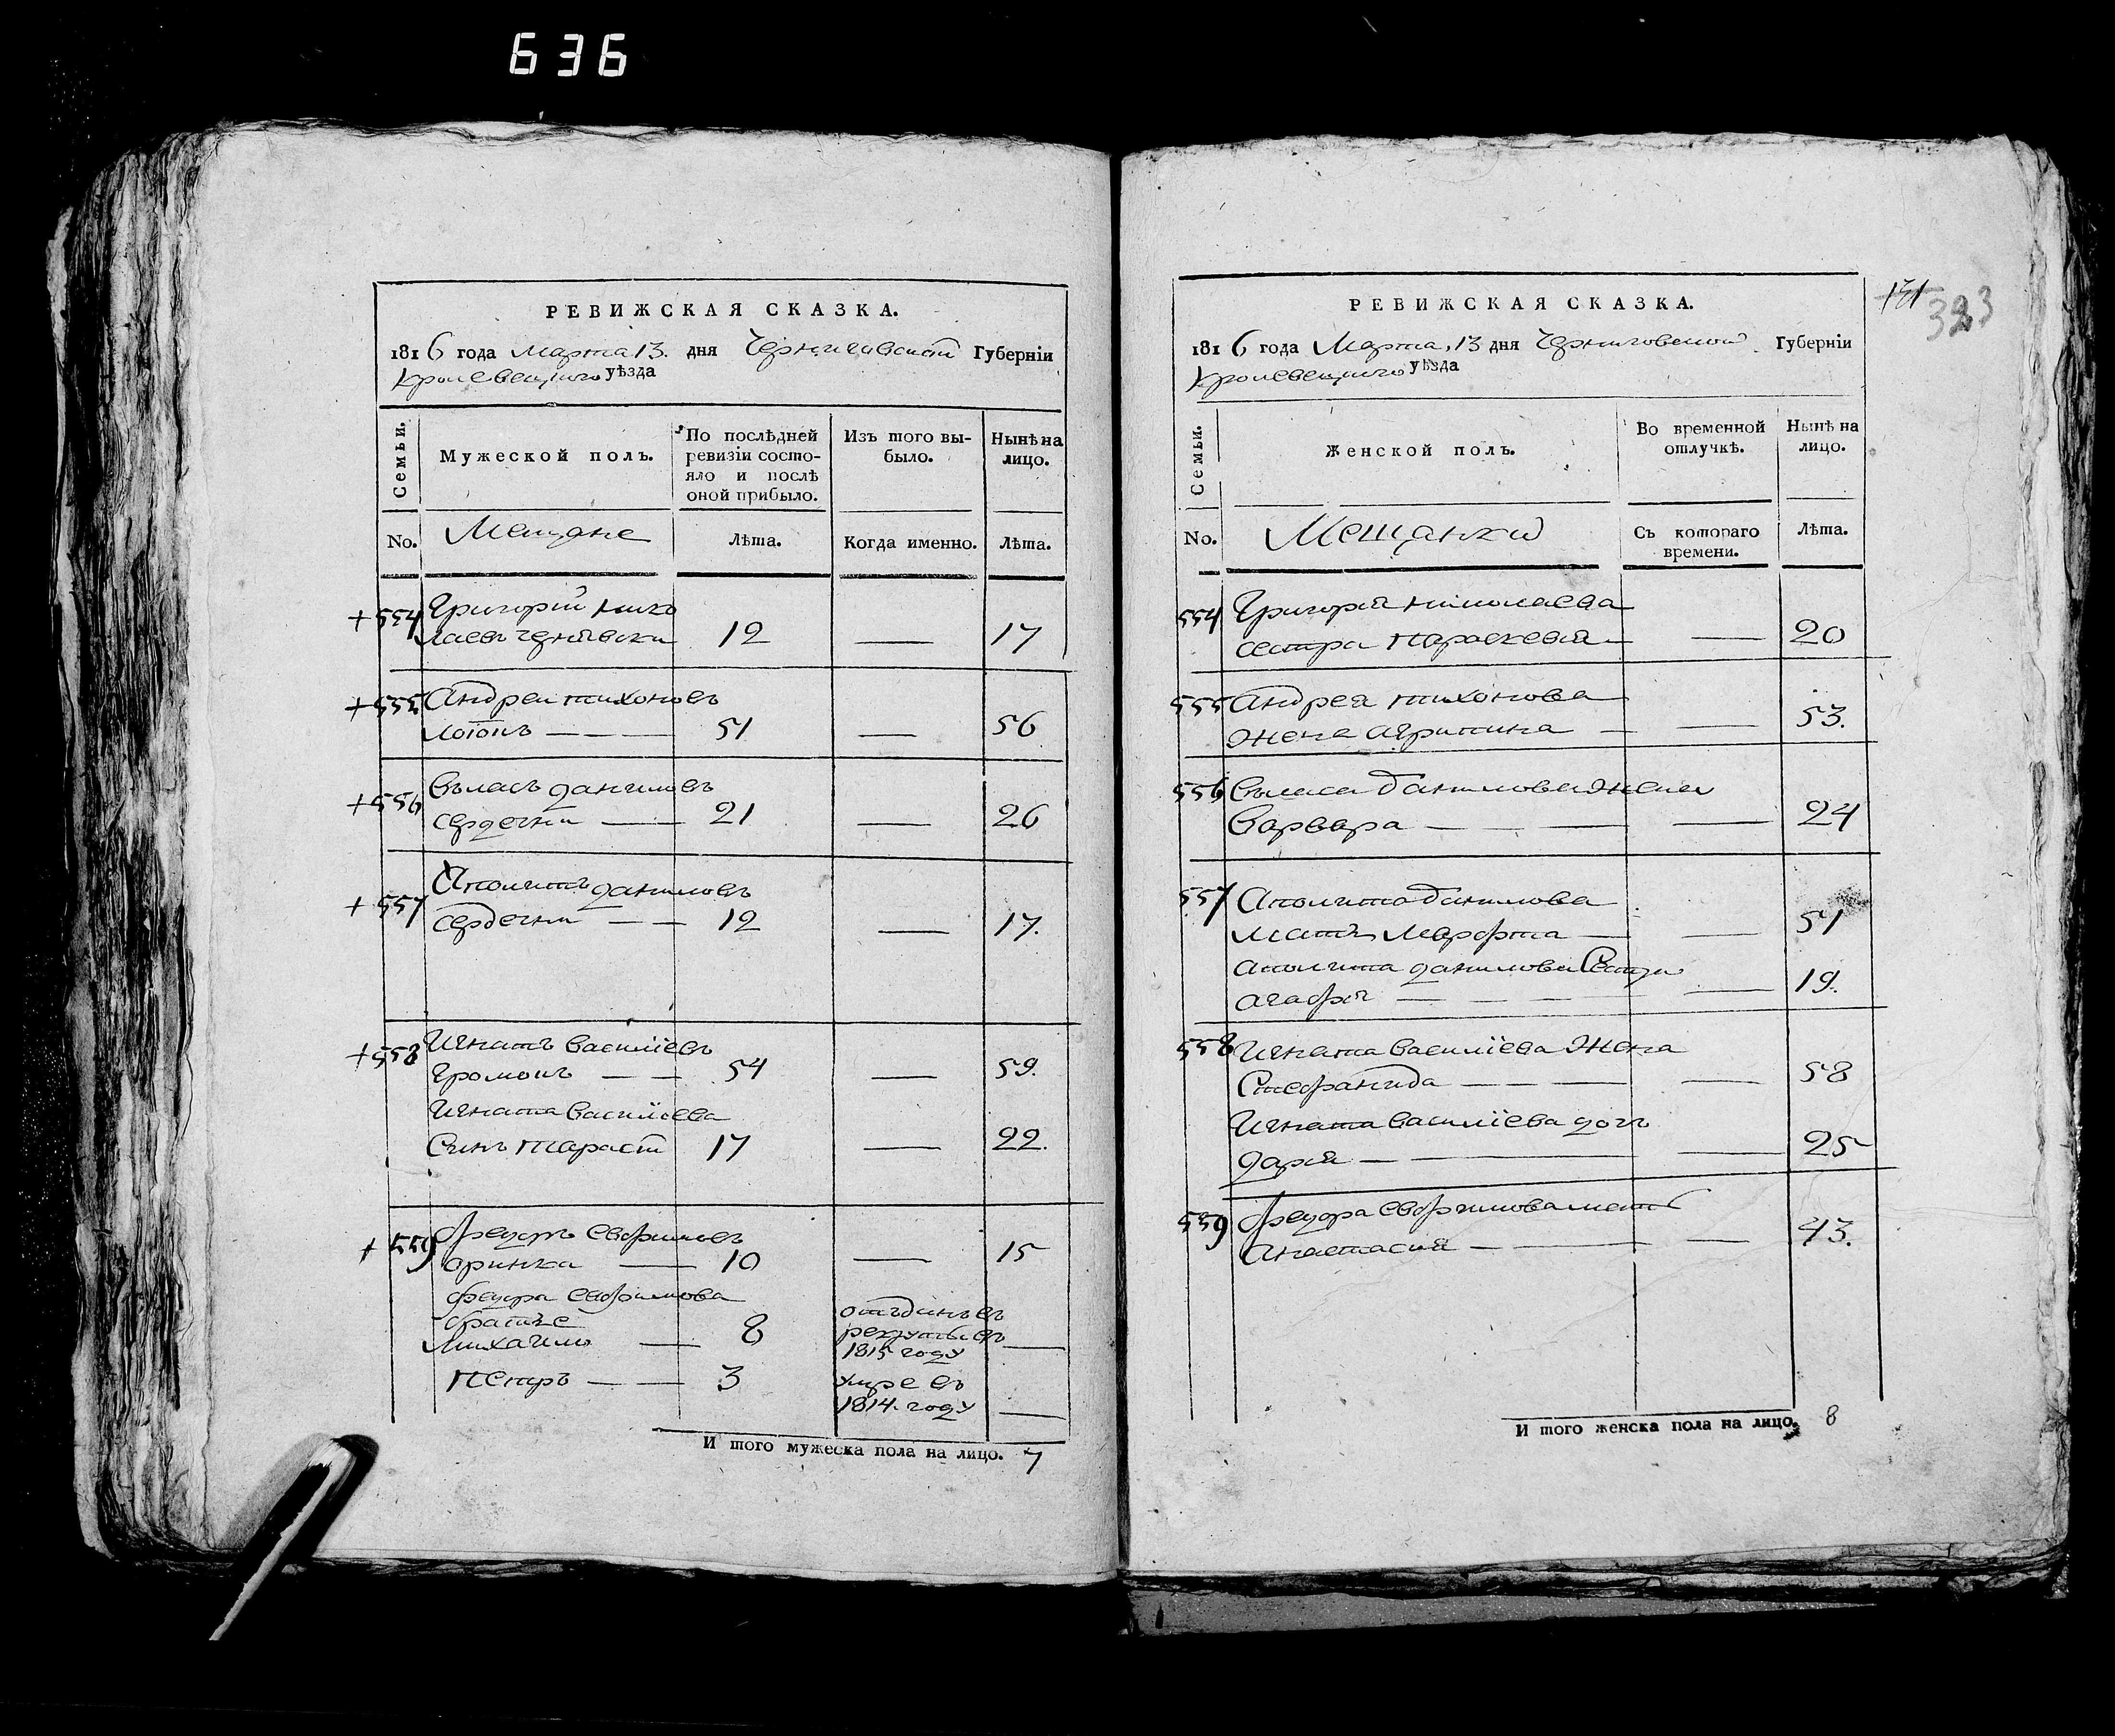 636
РЕВИЖСКАЯ СКАЗКА.
1816 года Марта 13. дня Черниговской Губерніи
Кролевецкого уѣзда
Семьи.
Мужеской полъ.
По послѣдней ревизіи состояло и послѣ оной прибыло.
Изъ того выбыло.
Нынѣ на лицо.
No.
Мещане
Лѣта.
Когда именно.
Лѣта.
+554 Григорій Нико
лаевъ 12 — 17
+555 Андреи тихоновъ
51 — 56
+556 Вьласъ даниловъ
сердечни — 21 — 26
+557 Аполитъ даниловъ
сердечни — — 12 — 17.
+558 Игнатъ Василіевъ
Громопъ — — 54 — 59.
Игната Василіева
Синъ тарасъ 17 — 22.
+559 Феudoръ Евфимовъ
оринка — 10 — 15
Федора Евфимова
братъе
Михаило — 8 отъданъ въ
рекруты въ
1815 году —
Петръ — — 3 умре въ
1814. году —
И того мужеска пола на лицо. 7
РЕВИЖСКАЯ СКАЗКА.
131
323
1816 года Марта, 13 дня Черниговской Губерніи
Кролевецкого уѣзда
Семьи.
Женской полъ.
Во временной отлучкѣ.
Нынѣ на лицо.
No.
Мещанки
Съ котораго времени.
Лѣта.
554 Григорія Николаева
сестра Параскевія — — 20
555 Андрея тихонова
жена Агрипина — — 53.
556 Вьласа Данилова жена
Варвара — — — — 24
557 Аполита Данилова
Мать Марфта — — 51
Аполита данилова Сестра
Агафія — — — — 19.
558 Игната Василіева Жена
Стефанида — — — — 58
Игната Василіева дочь
Дарія — — — 25
559 Федора Евфимова мать
Анастасия — — — 43.
И того женска пола на лицо. 8